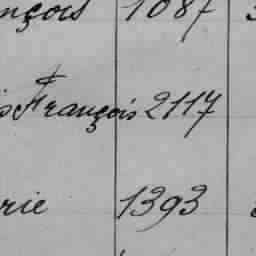 nçois 1087
is François 2117
rie 1393